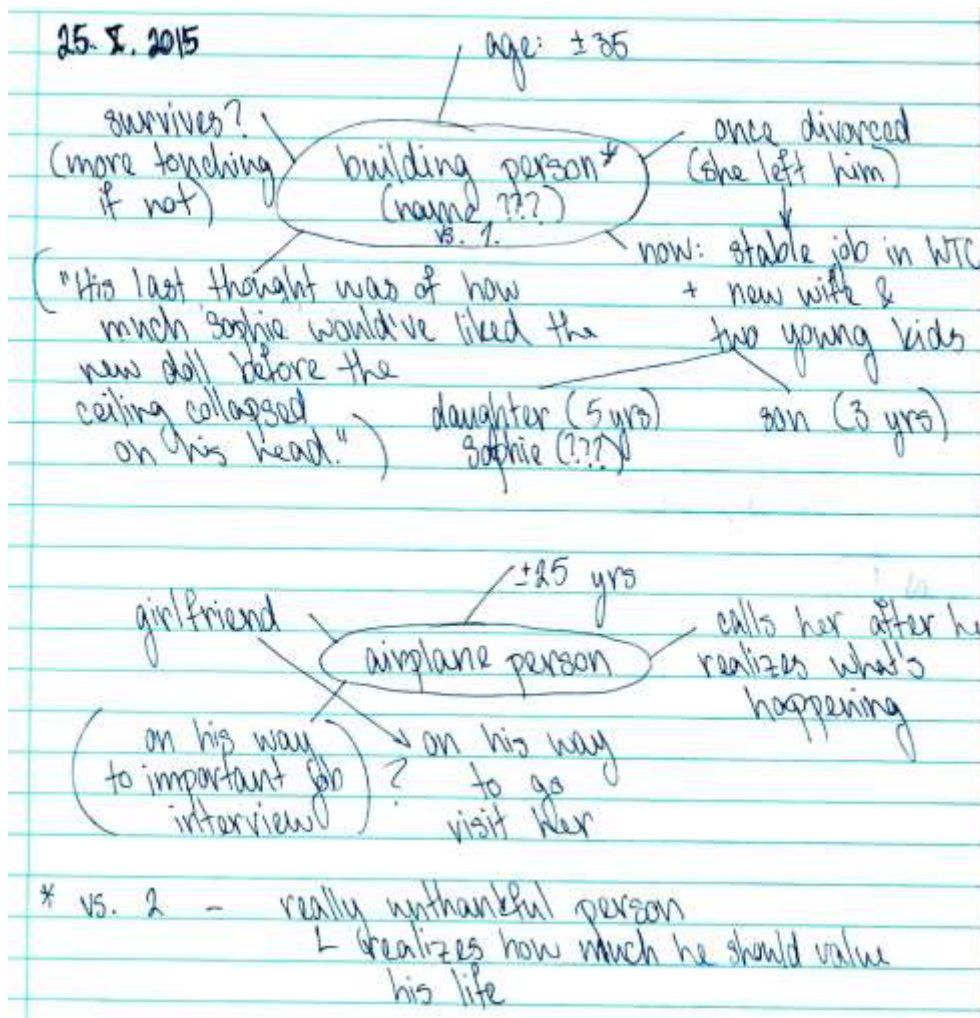 25. X. 2015
age: ±35
survives?
(more touching
if not)
building person*
(name ???)
vs. 1.
once divorced
(she left him)
now: stable job in WTC
+ new wife &
two young kids
("His last thought was of how
much Sophie would've liked the
new doll before the
ceiling collapsed
on his head.")
daughter (5 yrs)
Sophie (???)
son (3 yrs)
±25 yrs
girlfriend
airplane person
calls her after he
realizes what's
happening
(on his way
to important job
interview)
?
on his way
to go
visit her
* vs. 2 - really unthankful person
realizes how much he should value
his life